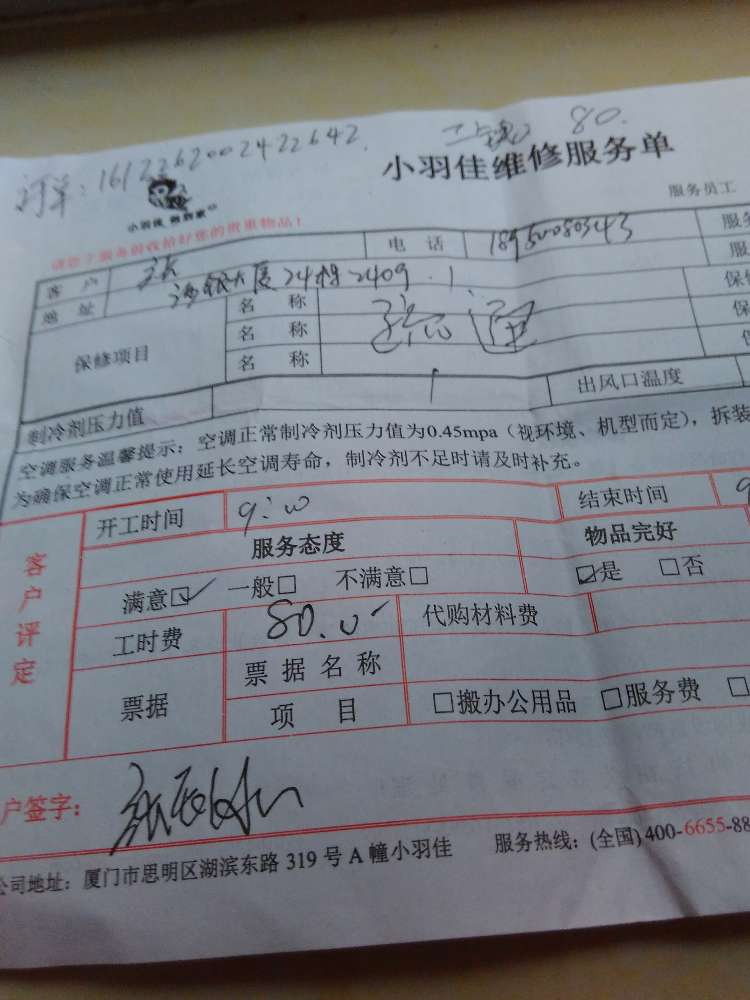 订单:1612262002422642. 80.
小羽佳维修服务单
小羽佳
服务员工
请您于服务前收拾好您的贵重物品!
客户 张 电话 18950080343 服务
地址 24楼2409 服
保修项目
名称 保修
名称 保
名称
制冷剂压力值 出风口温度
空调服务温馨提示:空调正常制冷剂压力值为0.45mpa(视环境、机型而定),拆装
为确保空调正常使用延长空调寿命,制冷剂不足时请及时补充。
客户评定
开工时间 9:00 结束时间 9
服务态度 物品完好
满意☑ 一般□ 不满意□ ☑是 □否
工时费 80.00 代购材料费
票据 票据名称
项目 □搬办公用品 □服务费 □
户签字:
公司地址:厦门市思明区湖滨东路 319 号 A 幢小羽佳 服务热线:(全国)400-6655-88